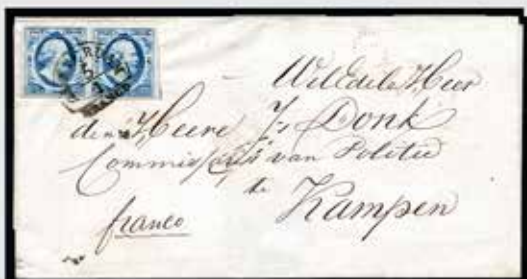 WelEdele Heer
den Heere Js Donk
Commissaris van Politie
te
Kampen
franco